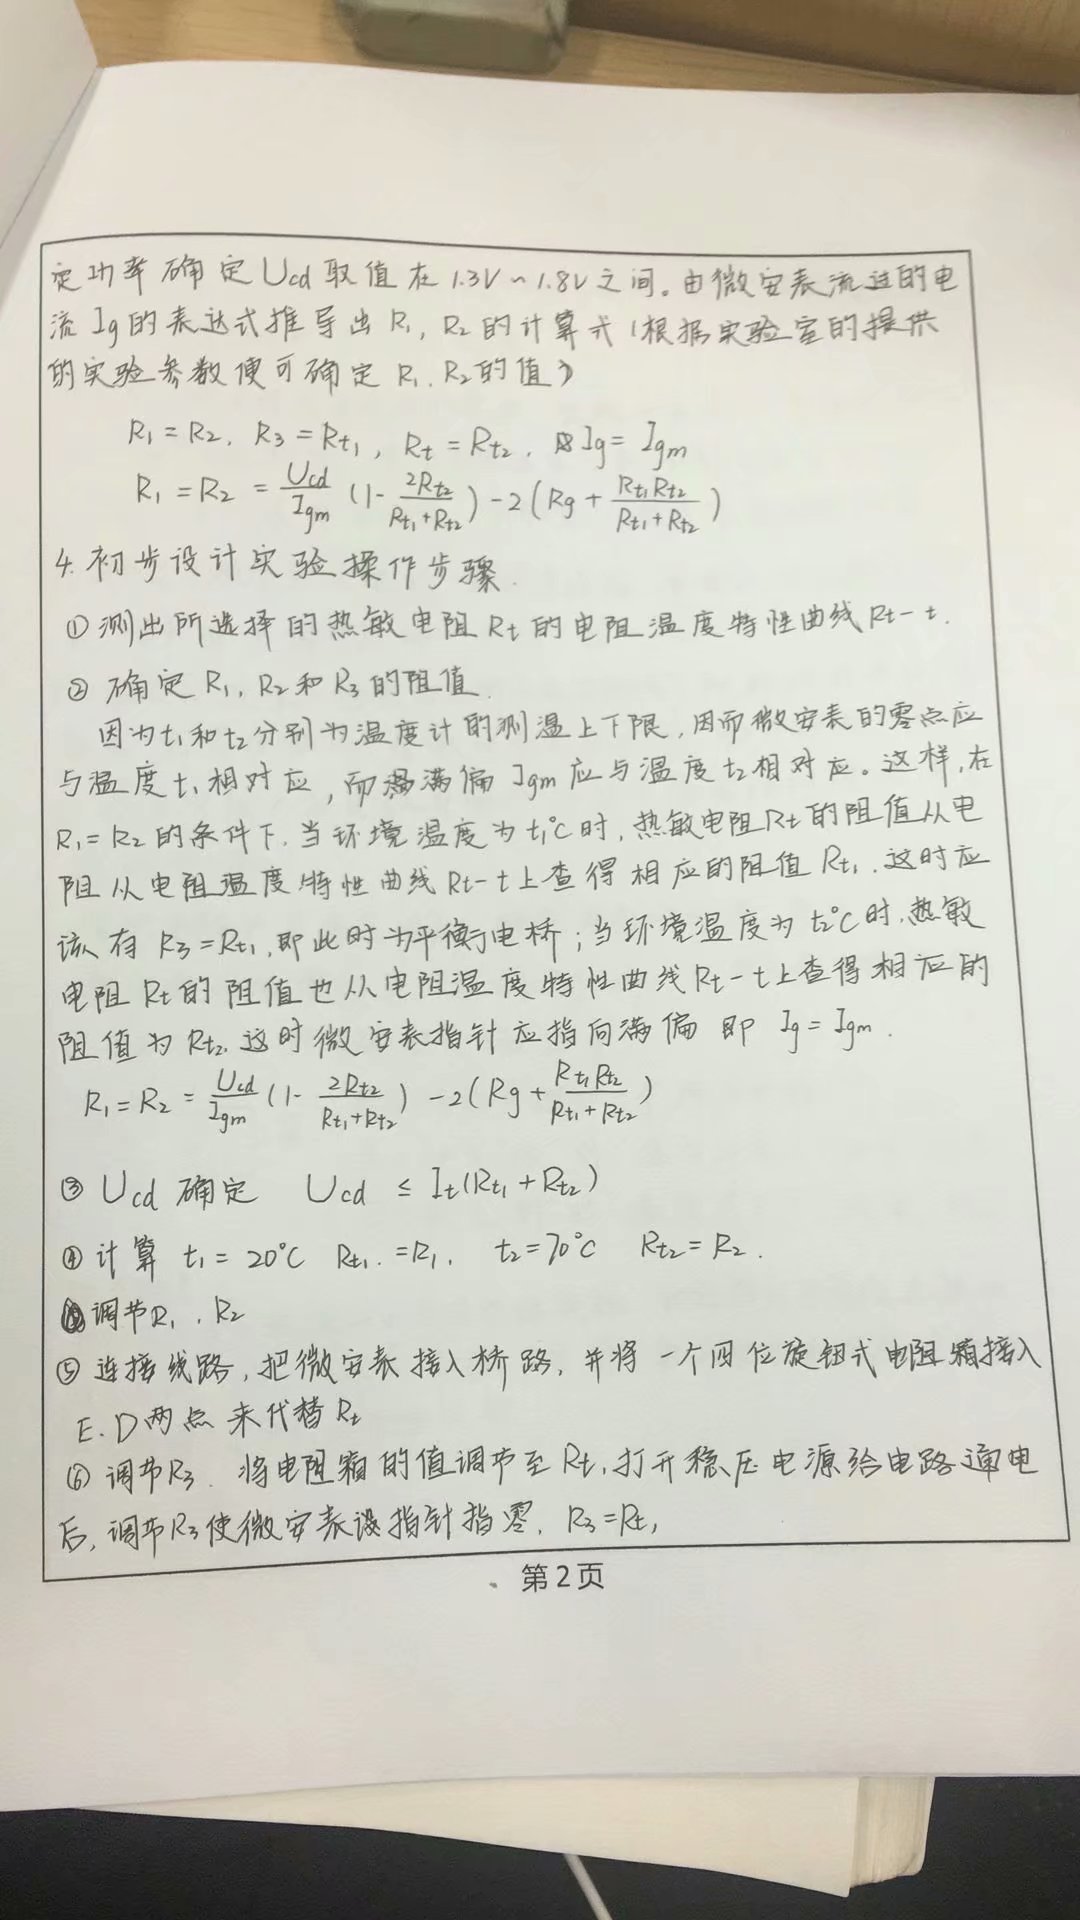 定功率确定Ucd取值在1.3V~1.8V之间。由微安表流过的电
流Ig的表达式推导出R₁,R₂的计算式(根据实验室的提供
的实验参数便可确定R₁.R₂的值)
R₁=R₂. R₃=Rt₁, Rt=Rt₂. Ig=Igm
R₁=R₂=Ucd/Igm(1-2Rt₂/(Rt₁+Rt₂))-2(Rg+Rt₁Rt₂/(Rt₁+Rt₂))
4.初步设计实验操作步骤.
①测出所选择的热敏电阻Rt的电阻温度特性曲线Rt-t.
②确定R₁,R₂和R₃的阻值.
因为t₁和t₂分别为温度计的测温上下限,因而微安表的零点应
与温度t₁相对应,而满偏Igm应与温度t₂相对应。这样,在
R₁=R₂的条件下.当环境温度为t₁℃时,热敏电阻Rt的阻值从电
阻从电阻温度特性曲线Rt-t上查得相应的阻值Rt₁.这时应
该有R₃=Rt₁,即此时为平衡电桥;当环境温度为t₂℃时.热敏
电阻Rt的阻值也从电阻温度特性曲线Rt-t上查得相应的
阻值为Rt₂.这时微安表指针应指向满偏即Ig=Igm.
R₁=R₂=Ucd/Igm(1-2Rt₂/(Rt₁+Rt₂))-2(Rg+Rt₁Rt₂/(Rt₁+Rt₂))
③Ucd确定 Ucd≤It(Rt₁+Rt₂)
④计算 t₁=20℃ Rt₁.=R₁. t₂=70℃ Rt₂=R₂.
调节R₁.R₂
⑤连接线路,把微安表接入桥路,并将一个四位旋钮式电阻箱接入
E.D两点来代替Rt
⑥调节R₃.将电阻箱的值调节至Rt₁打开稳压电源给电路通电
后,调节R₃使微安表指针指零. R₃=Rt₁
第2页